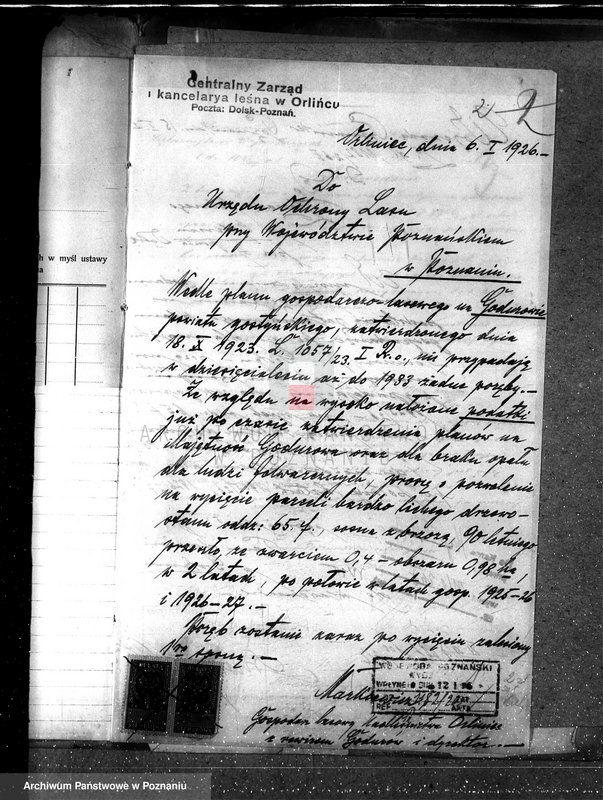 Centralny Zarząd
i kancelarya leśna w Orlińcu
Poczta: Dolsk-Poznań.
2
Orliniec, dnia 6. I 1926.-
Do
Urzędu Ochrony Lasu
przy Województwie Poznańskiem
w Poznaniu.
h w myśl ustawy
Wedle planu gospodarczo-lasowego na Godurowie
powiatu gostyńskiego, zatwierdzonego dnia
18. X 1923. L. 1057/23. I R.o., nie przypadają
w dziesięcioleciu aż do 1933 żadne poręby.-
Ze względu na wysoko nałożone podatki
już po czasie zatwierdzenia planów na
Majętność Godurowo oraz dla braku opału
dla ludzi folwarcznych, proszę o pozwolenie
na wycięcie parceli bardzo lichego drzewo-
stanu oddz: 65 f., sosna z brzozą, 90 letniego
ze zwarciem 0,4 - obszaru 0,98 ha,
w 2 latach, po połowie w latach gosp. 1925-26
i 1926-27.-
Poręb zostanie zaraz po wycięciu zalesiony
sosną.-
WOJEWODA POZNAŃSKI
WPŁYNĘŁO DNIA 12 I 26
Gospodarz lasowy Orliniec
z rewirem Godurów i dyrektor.-
Archiwum Państwowe w Poznaniu